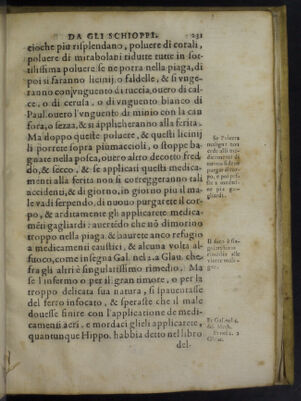 DA GLI SCHIOPPI. 231
cioche piu risplendano, poluere di corali,
poluere di mirabolani ridutte tutte in sot-
tilissima poluere se ne porra nella piaga, di
poi si faranno licinij o faldelle, & si vnge-
ranno con l'vnguento di tuccia, ouero di cal-
ce, o di cerusa, o di vnguento bianco di
Paul. ouero l'vnguento di minio con la can
fora, o senza, & si applicheranno alla ferita.
Ma doppo queste poluere, & questi licinij
li porrete sopra piumaccioli, o stoppe ba-
gnate nella posca, ouero altro decotto fred
do, & secco, & se applicati questi medica-
menti alla ferita non si correggeranno tali
accidenti, & di giorno, in giorno piu il ma-
le va di serpendo, di nuouo purgarete il cor-
po, & arditamente gli applicarete medica-
méti gagliardi: auertédo che nō dimorino
troppo nella piaga, & haurete anco refugio
a medicamenti caustici, & alcuna volta al
fuoco, come insegna Gal. nel 2. a Glau. che
fra gli altri è singularissimo rimedio. Ma
se l'infermo o per il gran timore, o per la
troppa delicata sua natura, si spauentasse
del ferro infocato, & speraste che il male
douesse finire con l'applicatione de medi-
camenti acri, e mordaci glieli applicarete,
quantunque Hippo. habbia detto nel libro
del-
Se Poluera
maligna non
cede alli me-
dicamenti di
nuouo si
purgar
gliardi.
Il fuoco è sin-
gularissimo
rimedio alle
vlcere mali-
gne.
Et Gal. nel 4.
del Meth.
Et nel 2. a
Glau.